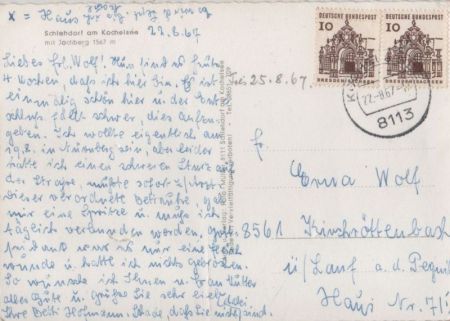 X = Haus
Schlehdorf am Kochelsee
mit Jochberg 1567 m
22.8.67
Liebes Frl. Wolf! Nun sind es heute
4 Wochen, daß ich hier bin. Es ist
einmalig schön hier u. der Ent-
schluß fällt schwer, dies aufzu-
geben. Ich wollte eigentlich am
in Nürnberg sein, aber leider
hatte ich einen schweren Sturz auf
der Straße, mußte sofort z. Arzt.
Dieser verordnete Bettruhe, gab
mir eine Spritze u. muß ich
täglich verbunden werden. Gott
sei Dank war es nur eine Fleisch
wunde u. hatte ich nichts gebrochen.
So wünsche ich Ihnen u. Frau Mutter
alles Gute u. grüße Sie sehr lieb
Ihre Betti Hofmann. Schade daß Sie nicht sind.
bis 25.8.67.
DEUTSCHE BUNDESPOST
10
DRESDEN
DEUTSCHE BUNDESPOST
10
DRESDEN
22.-8.67
8113
Erna Wolf
8561 Kirchröttenbach
ü/Lauf a. d. Pegnitz
Haus Nr. 71